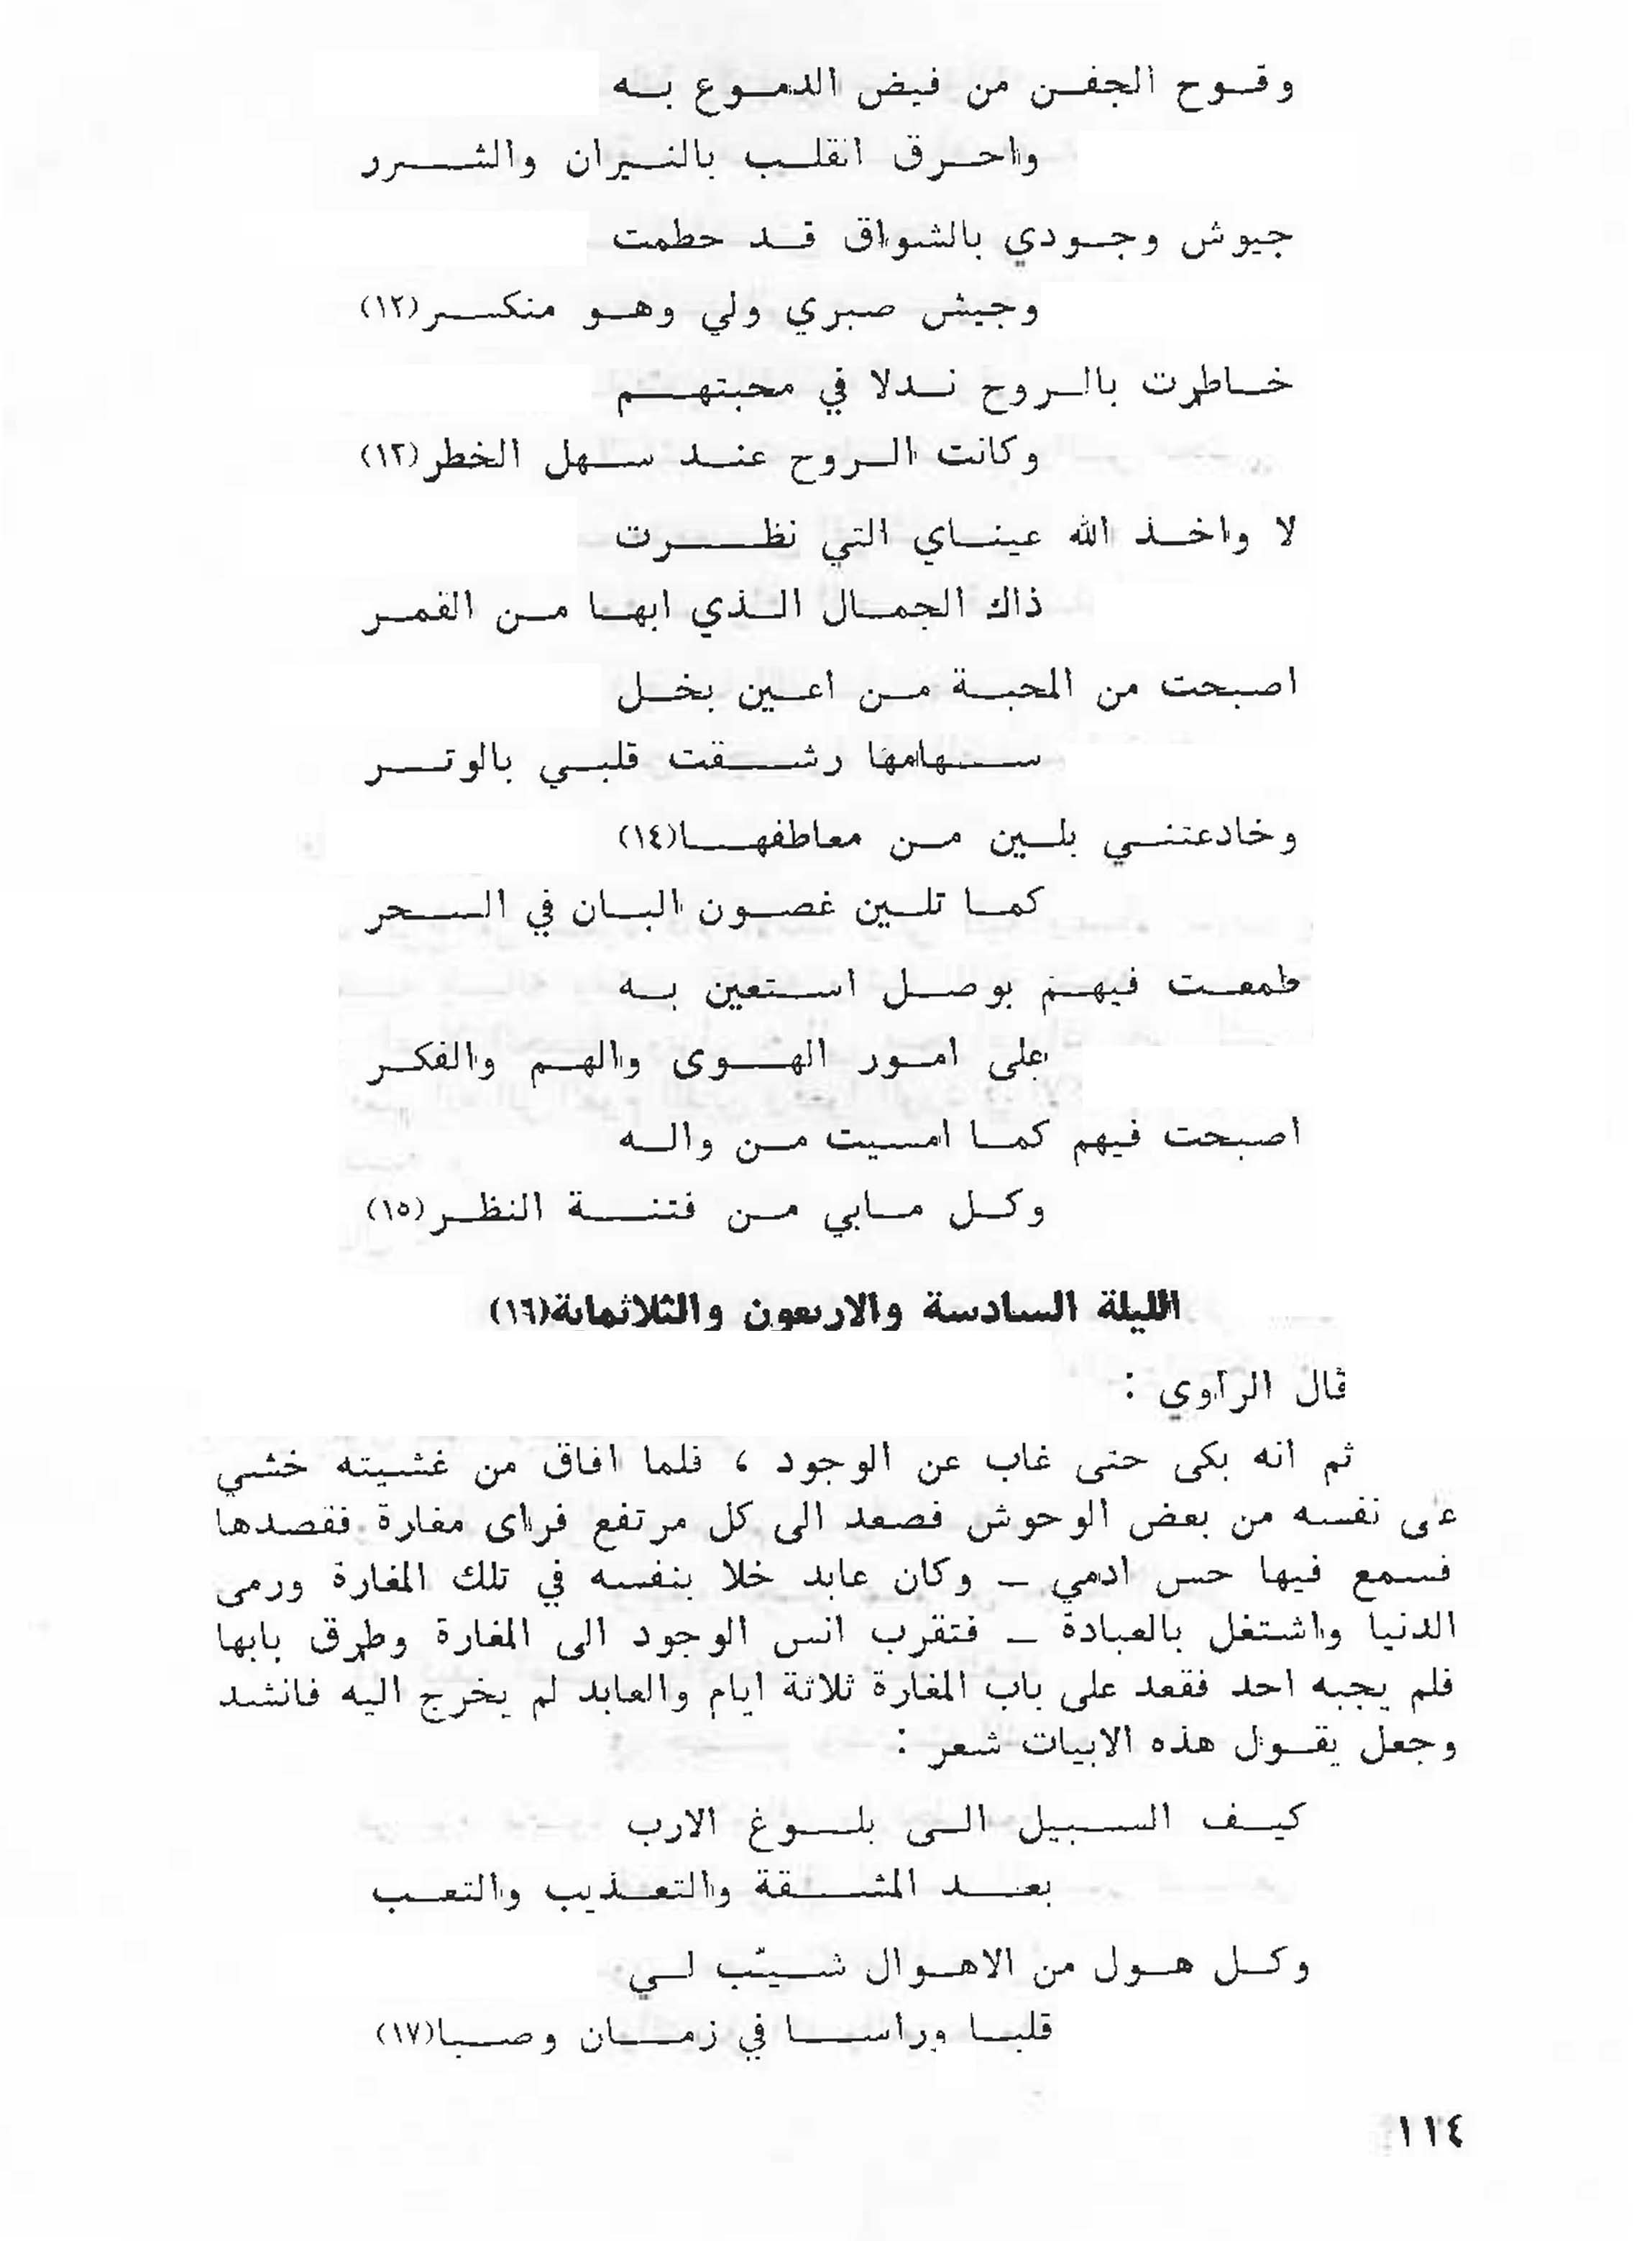 وقوح الجفن من فيض الدموع به
واحرق القلب بالنيران والشرر
جيوش وجودي بالشواق قد حطمت
وجيش صبري ولي وهو منكسر(١٢)
خاطرت بالروح ندلا في محبتهم
وكانت الروح عند سهل الخطر(١٣)
لا واخذ الله عيناي التي نظرت
ذاك الجمال الذي ابها من القمر
اصبحت من المحبة من اعين بخل
سهامها رشقت قلبي بالوتر
وخادعتني بلين من معاطفها(١٤)
كما تلين غصون البان في السحر
طمعت فيهم بوصل استعين به
على امور الهوى والهم والفكر
اصبحت فيهم كما امسيت من واله
وكل مابي من فتنة النظر(١٥)
الليلة السادسة والاربعون والثلاثماية(١٦)
قال الراوي :
ثم انه بكى حتى غاب عن الوجود ، فلما افاق من غشيته خشي
على نفسه من بعض الوحوش فصعد الى كل مرتفع فراى مغارة فقصدها
فسمع فيها حس ادمي ــ وكان عابد خلا بنفسه في تلك المغارة ورمى
الدنيا واشتغل بالعبادة ــ فتقرب انس الوجود الى المغارة وطرق بابها
فلم يجبه احد فقعد على باب المغارة ثلاثة ايام والعابد لم يخرج اليه فانشد
وجعل يقول هذه الابيات شعر :
كيف السبيل الى بلوغ الارب
بعد المشقة والتعذيب والتعب
وكل هول من الاهوال شيّب لي
قلبا وراسا في زمان وصبا(١٧)
١١٤